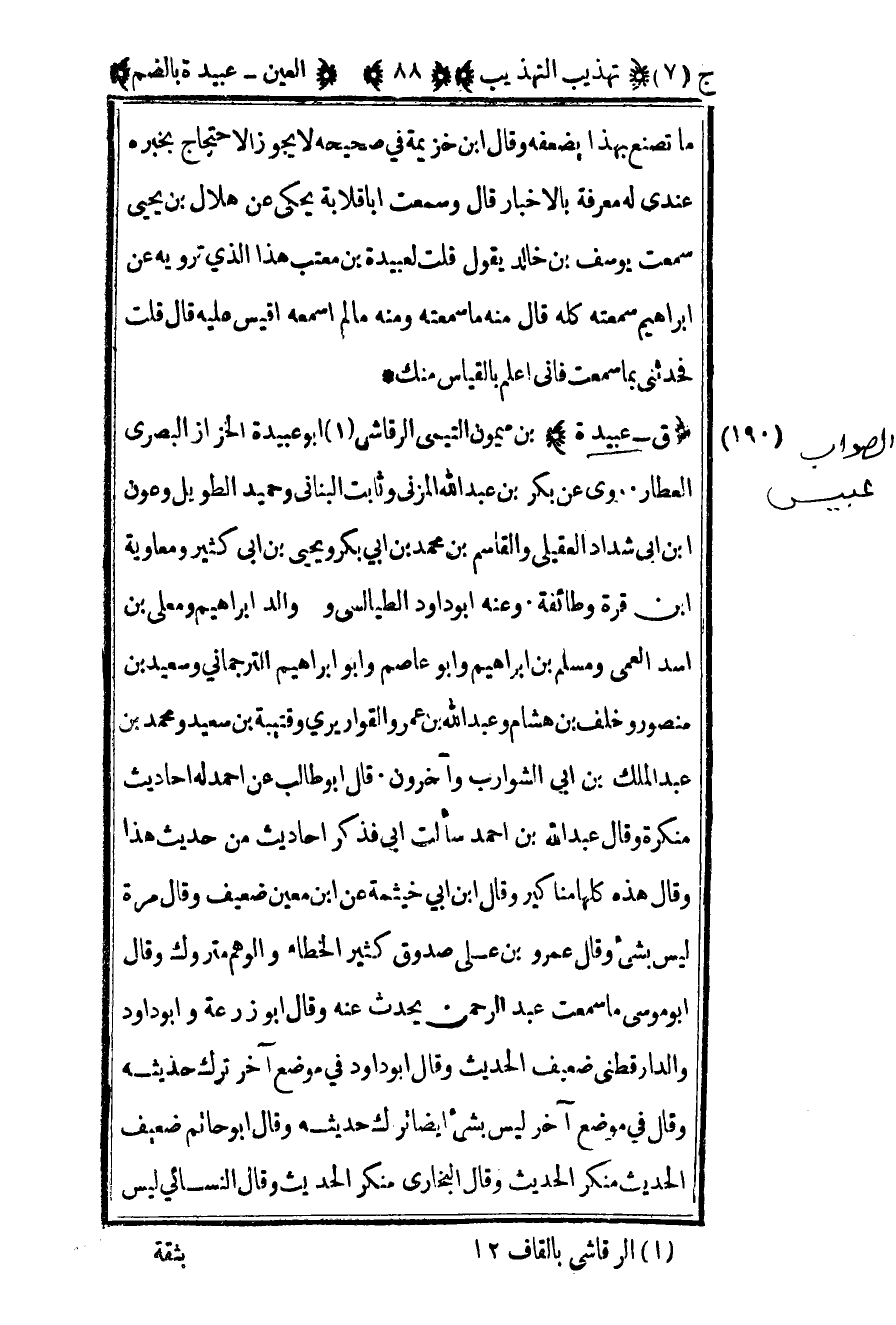 ج (٧) ﴿ تهذيب التهذيب ﴾ ﴿ ٨٨ ﴾ ﴿ العين - عبيدة بالضم ﴾
ما تصنع بهذا يضعفه وقال ابن خزيمة في صحيحه لا يجوز الاحتجاج بخبره
عندى له معرفة بالاخبار قال وسمعت اباقلابة يحكى عن هلال بن يحيى
سمعت يوسف بن خالد يقول قلت لعبيدة بن معتب هذا الذي ترويه عن
ابراهيم سمعته كله قال منه ما سمعته ومنه مالم اسمعه اقيس عليه قال قلت
فحدثنى بما سمعت فانى اعلم بالقياس منك*
﴿ ق - عبيدة ﴾ بن ميمون التيمى الرقاشى (١) ابو عبيدة الخزاز البصرى
(١٩٠) الصواب
عبيس
العطار ٠٠وى عن بكر بن عبدالله المزنى وثابت البنانى وحميد الطويل وعون
ابن ابى شداد العقيلى والقاسم بن محمد بن ابي بكر ويحيى بن ابى كثير ومعاوية
ابن قرة وطائفة ٠ وعنه ابوداود الطيالسى و والد ابراهيم ومعلى بن
اسد العمى ومسلم بن ابراهيم وابو عاصم وابو ابراهيم الترجماني وسعيد بن
منصور وخلف بن هشام وعبدالله بن عمر والقواريري وقتيبة بن سعيد ومحمد بن
عبد الملك بن ابي الشوارب وآخرون ٠ قال ابوطالب عن احمد له احاديث
منكرة وقال عبدالله بن احمد سألت ابى فذكر احاديث من حديث هذا
وقال هذه كلها مناكير وقال ابن ابي خيثمة عن ابن معين ضعيف وقال مرة
ليس بشئ وقال عمرو بن عــلى صدوق كثير الخطاء والوهم متروك وقال
ابوموسى ما سمعت عبد الرحمن يحدث عنه وقال ابو زرعة و ابوداود
والدارقطنى ضعيف الحديث وقال ابوداود في موضع آخر ترك حذيثــه
وقال في موضع آخر ليس بشئ ايضا ترك حديثــه وقال ابوحاتم ضعيف
الحديث منكر الحديث وقال البخارى منكر الحديث وقال النســائي ليس
(١) الرقاشى بالقاف ١٢ بثقة